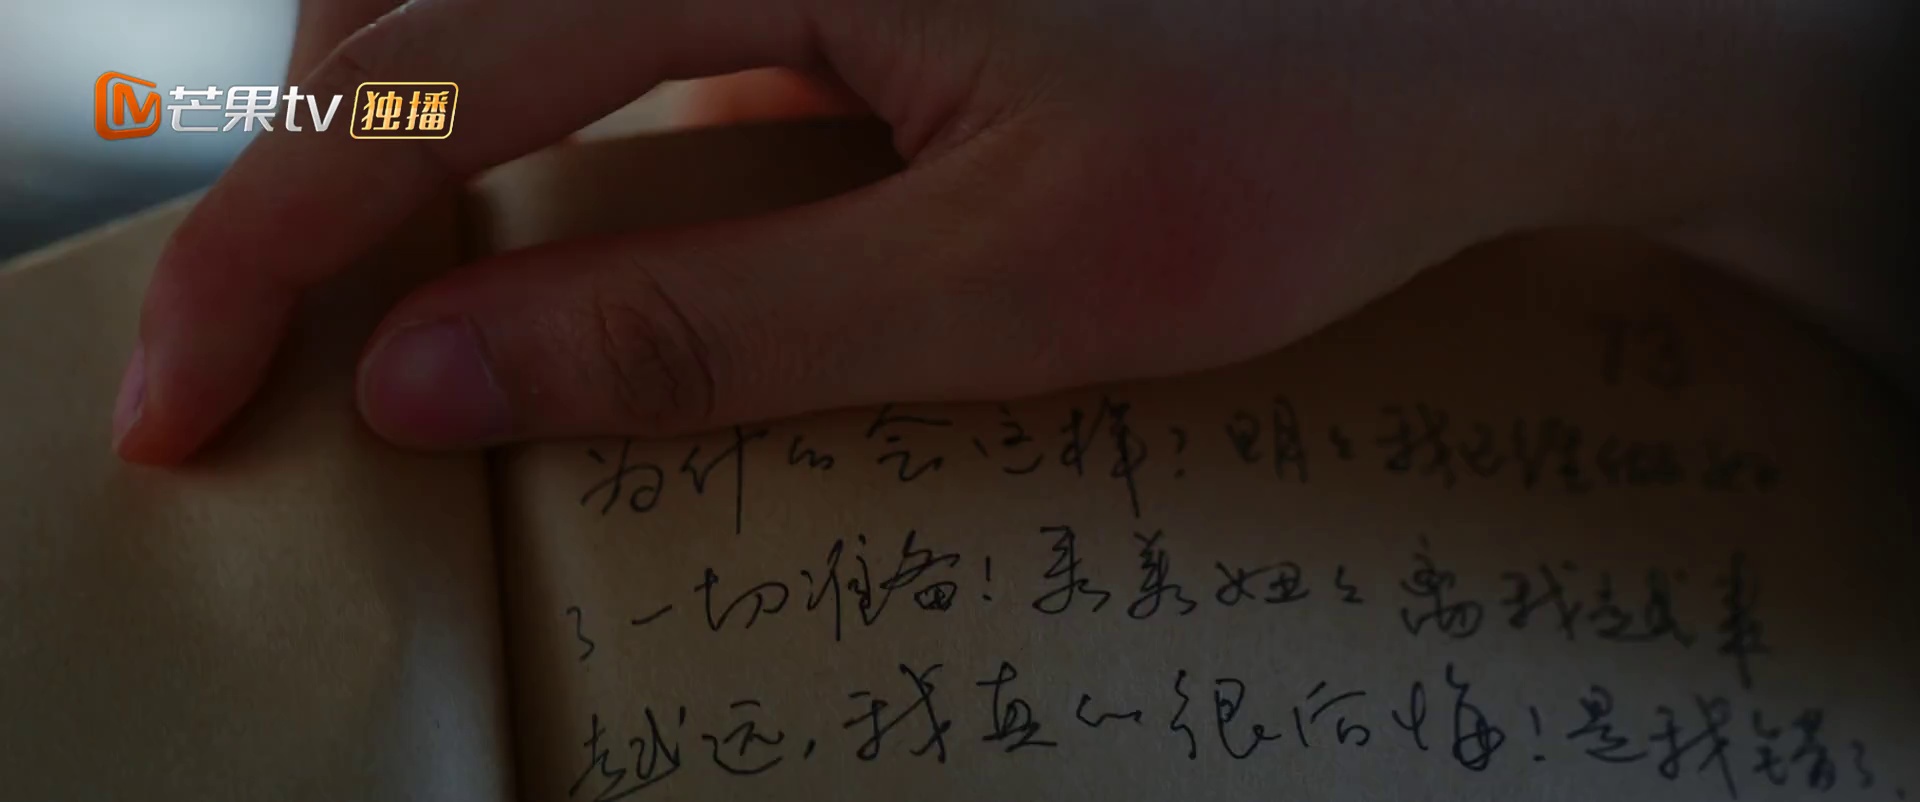 芒果tv 独播
为什么会这样？明明我已经做好
了一切准备！看着妞妞离我越来
越远，我真的很后悔！是我错了